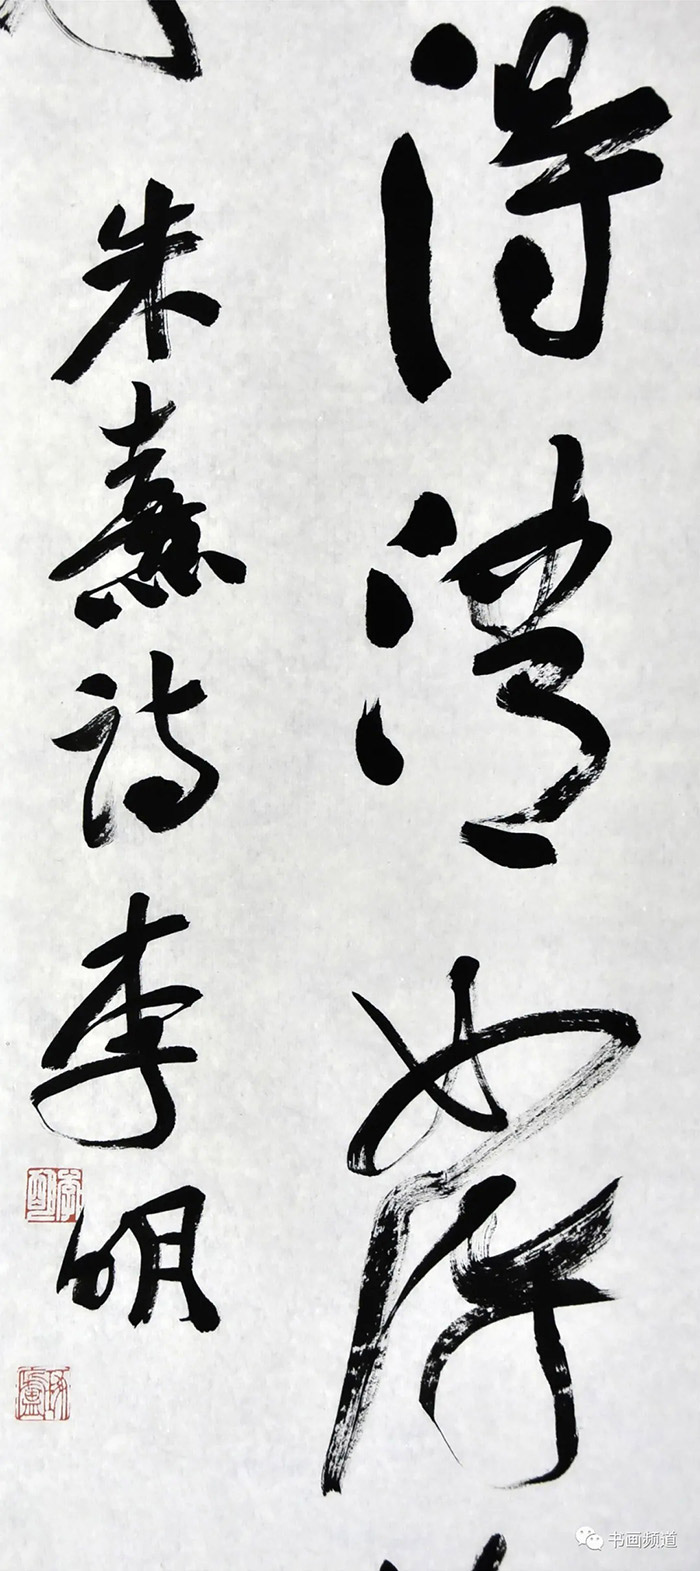 得清如许
朱熹诗李明
李明
书画频道